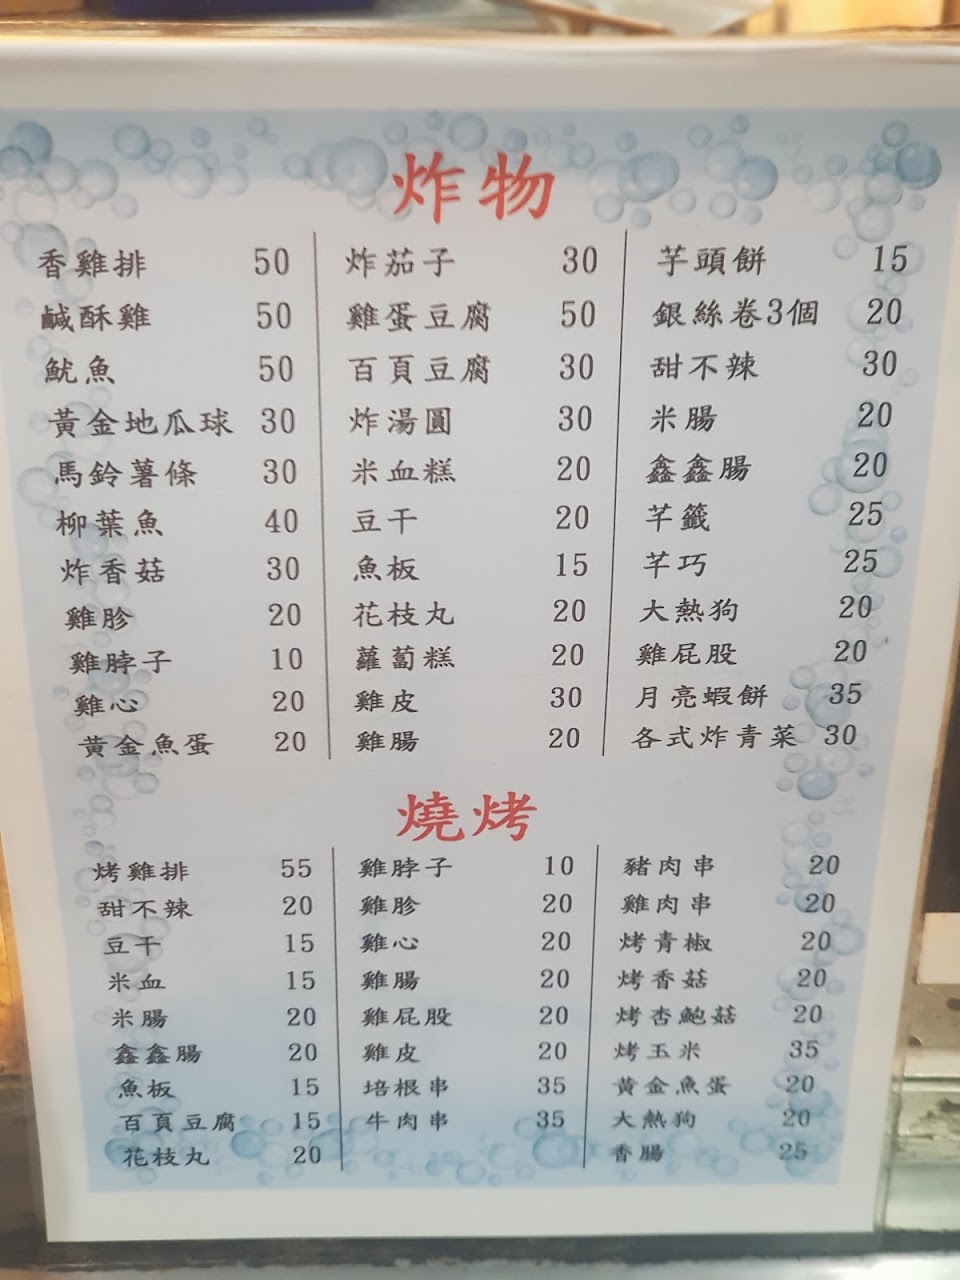 炸物
香雞排 50
鹹酥雞 50
魷魚 50
黃金地瓜球 30
馬鈴薯條 30
柳葉魚 40
炸香菇 30
雞胗 20
雞脖子 10
雞心 20
黃金魚蛋 20
炸茄子 30
雞蛋豆腐 50
百頁豆腐 30
炸湯圓 30
米血糕 20
豆干 20
魚板 15
花枝丸 20
蘿蔔糕 20
雞皮 30
雞腸 20
芋頭餅 15
銀絲卷3個 20
甜不辣 30
米腸 20
鑫鑫腸 20
芊籤 25
芊巧 25
大熱狗 20
雞屁股 20
月亮蝦餅 35
各式炸青菜 30
燒烤
烤雞排 55
甜不辣 20
豆干 15
米血 15
米腸 20
鑫鑫腸 20
魚板 15
百頁豆腐 15
花枝丸 20
雞脖子 10
雞胗 20
雞心 20
雞腸 20
雞屁股 20
雞皮 20
培根串 35
牛肉串 35
豬肉串 20
雞肉串 20
烤青椒 20
烤香菇 20
烤杏鮑菇 20
烤玉米 35
黃金魚蛋 20
大熱狗 20
香腸 25